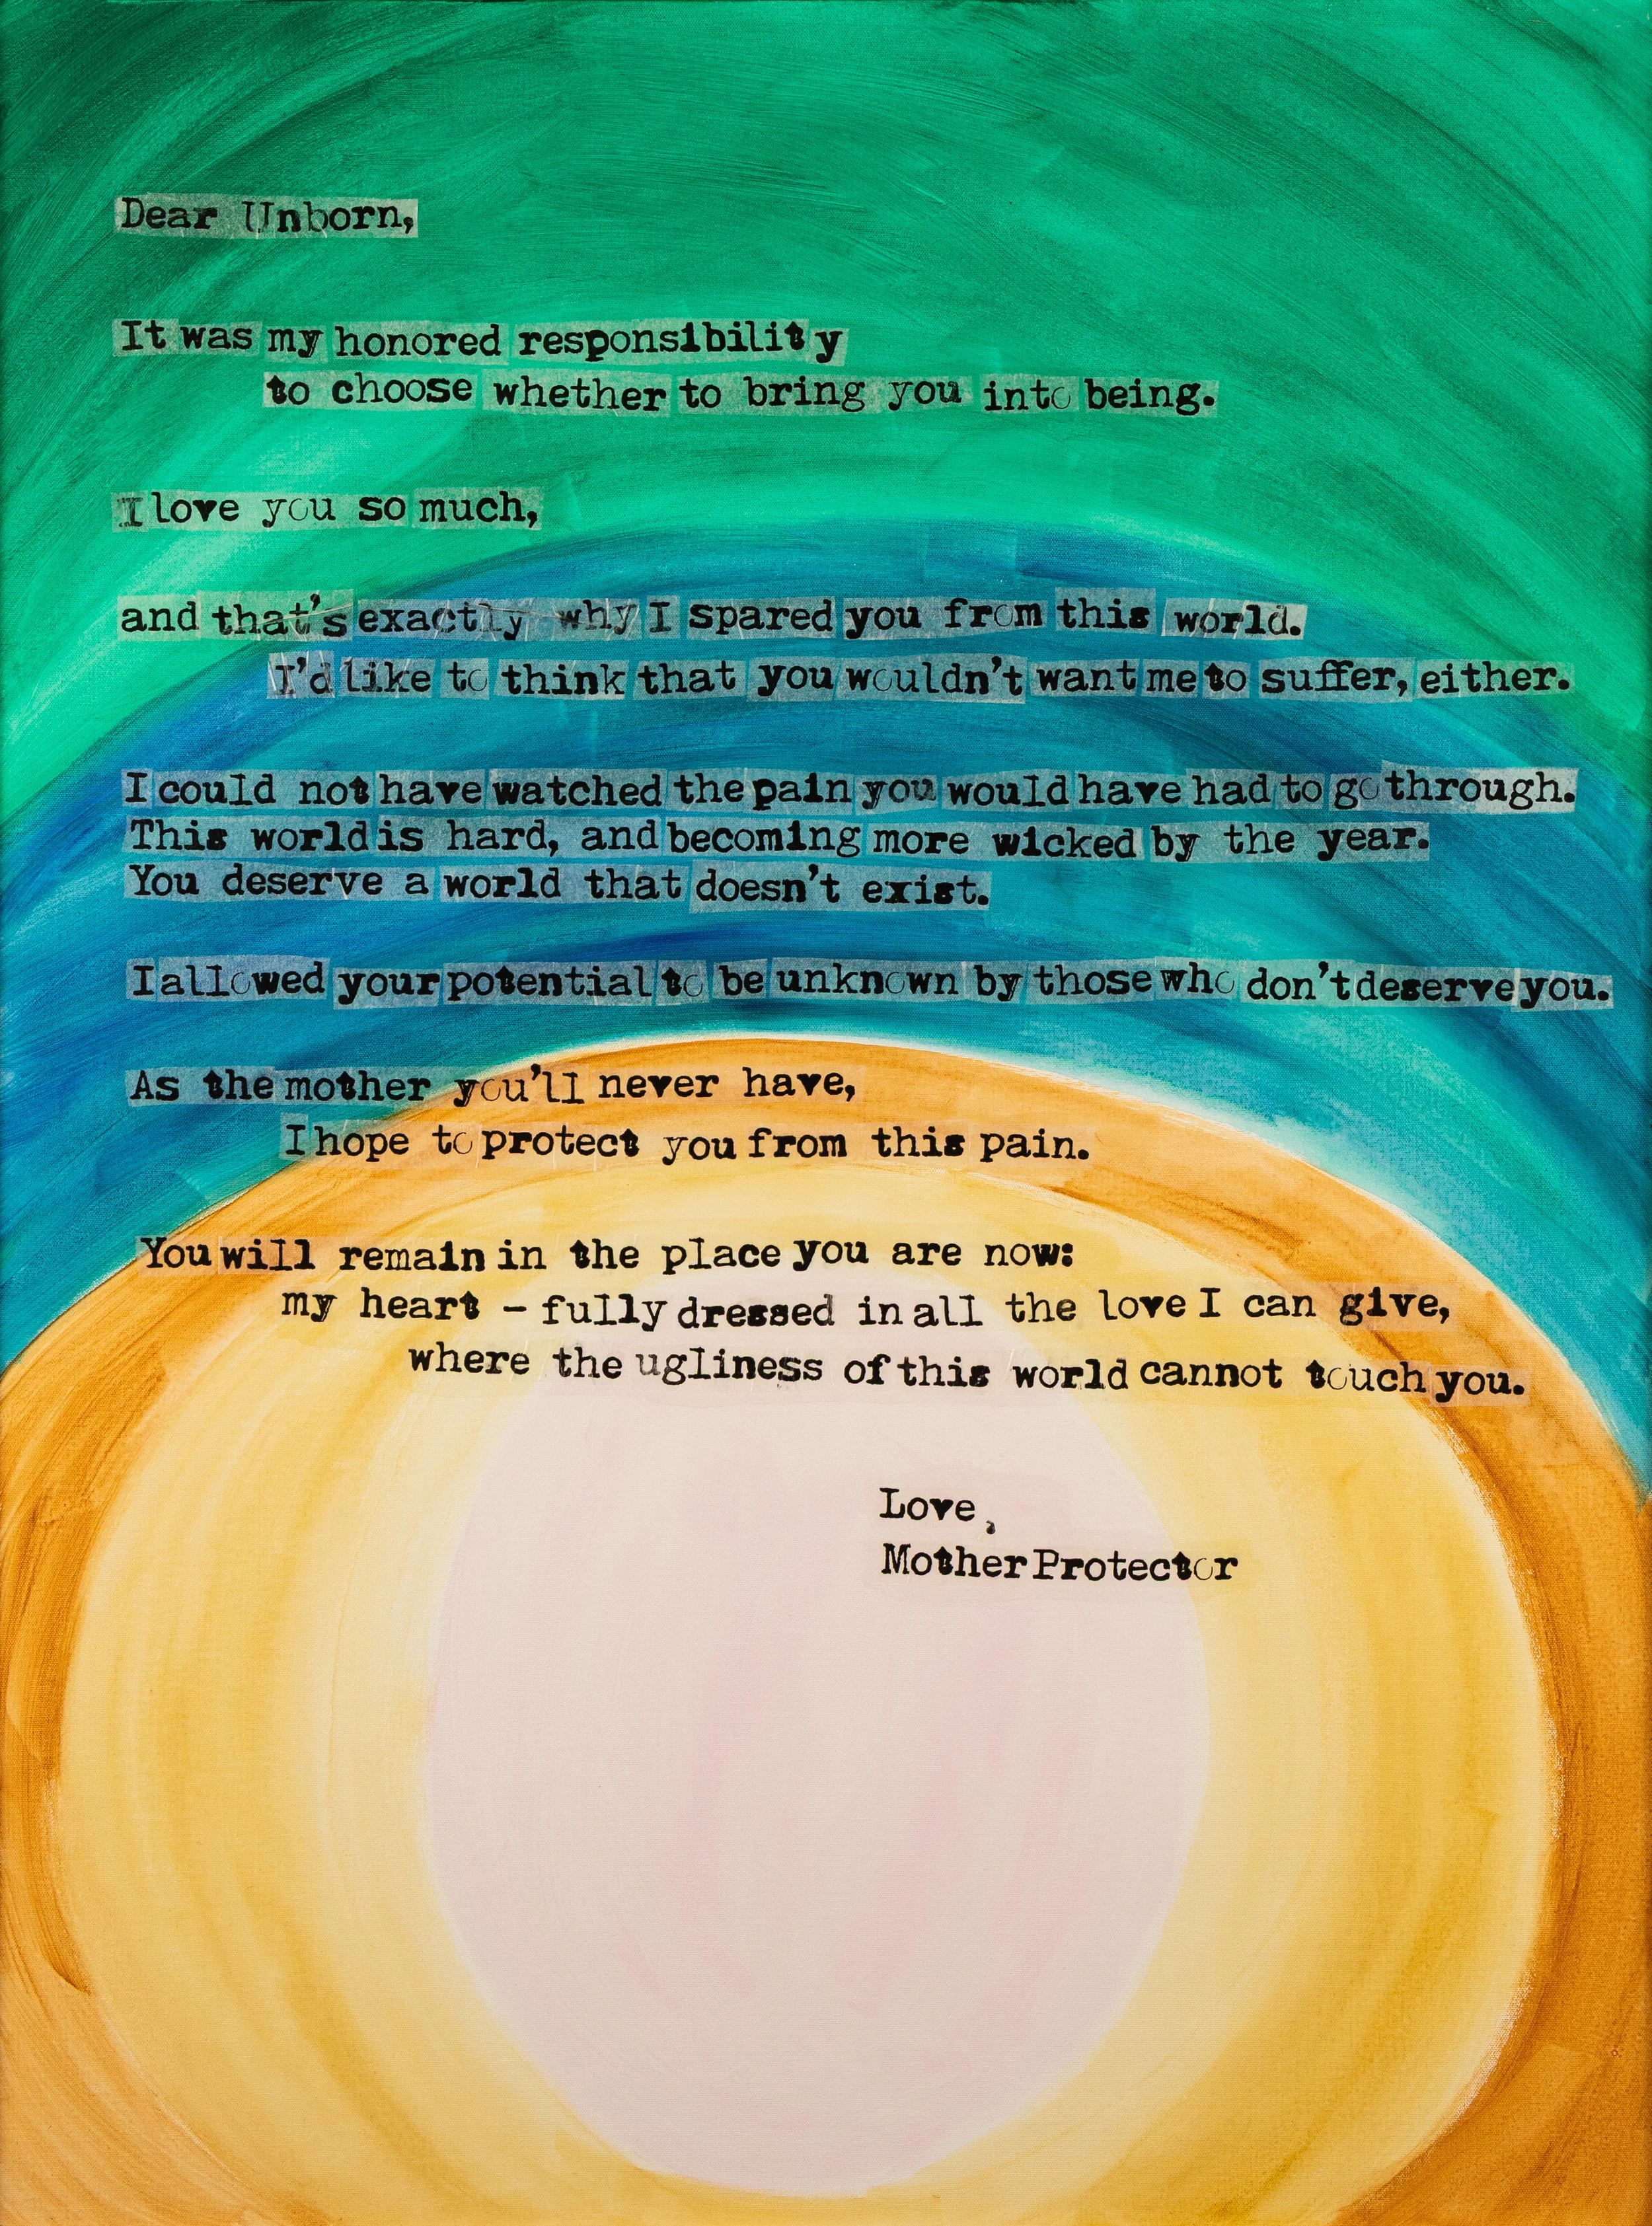 Dear Unborn,
It was my honored responsibility
to choose whether to bring you into being.
I love you so much,
and that's exactly why I spared you from this world.
I'd like to think that you wouldn't want me to suffer, either.
I could not have watched the pain you would have had to go through.
This world is hard, and becoming more wicked by the year.
You deserve a world that doesn't exist.
I allowed your potential to be unknown by those who don't deserve you.
As the mother you'll never have,
I hope to protect you from this pain.
You will remain in the place you are now:
my heart – fully dressed in all the love I can give,
where the ugliness of this world cannot touch you.
Love,
Mother Protector